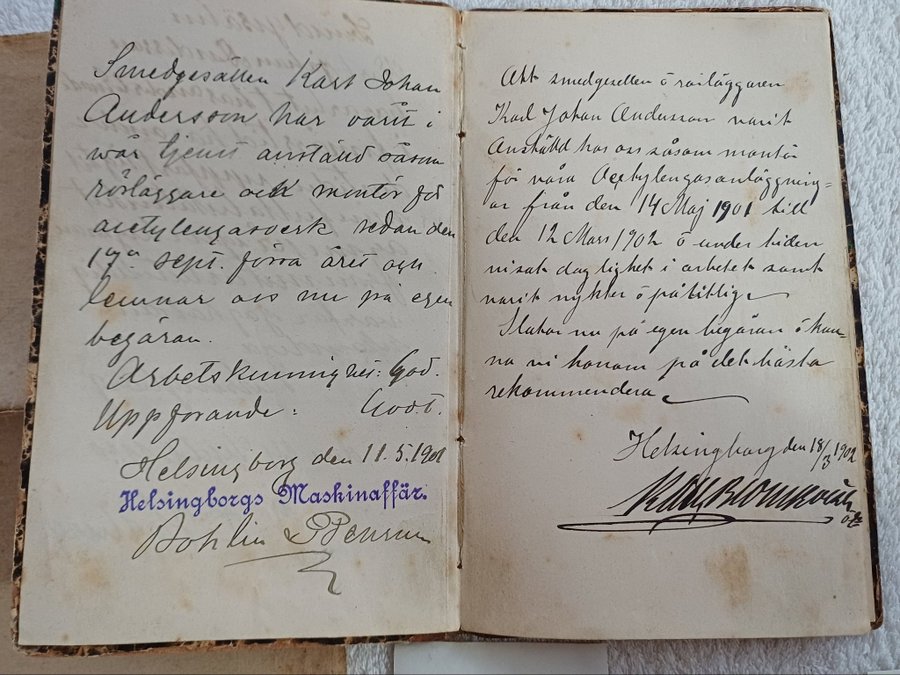 Smedgesällen Karl Johan
Andersson har varit i
vår tjenst anstäld såsom
rörläggare och montör för
acetylengasverk sedan den
17de sept. förra året och
lemnar oss nu på egen
begäran.
Arbetskunnighet: God.
Uppförande: Godt.
Helsingborg den 11.5.1901
Helsingborgs Maskinaffär.
Bohlin &
Att smedgesellen o rörläggaren
Karl Johan Andersson varit
Anställd hos oss såsom montör
för våra Acetylengasanläggning-
ar från den 14 Maj 1901 till
den 12 Mars 1902 o under tiden
visat duglighet i arbetet samt
varit nykter o pålitlig
Slutar nu på egen begäran o kun-
na vi honom på det bästa
rekommendera
Helsingborg den 18/3 1902